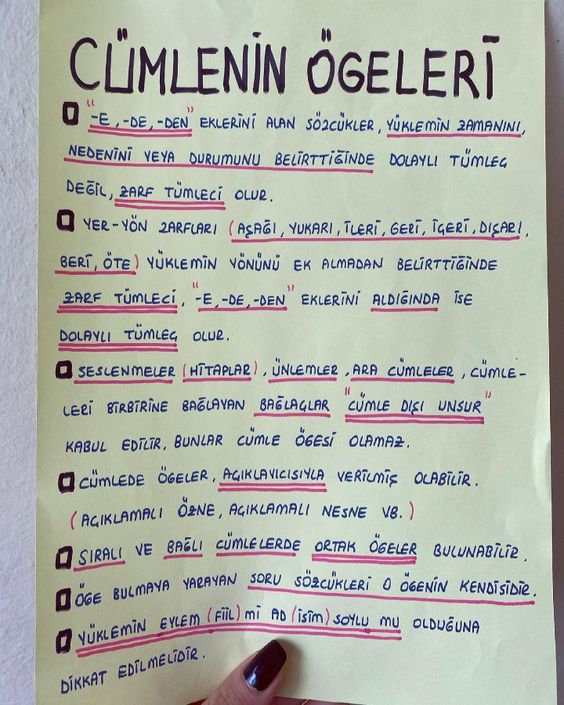 CÜMLENİN ÖGELERİ
"-E, -DE, -DEN" EKLERİNİ ALAN SÖZCÜKLER, YÜKLEMİN ZAMANINI,
NEDENİNİ VEYA DURUMUNU BELİRTTİĞİNDE DOLAYLI TÜMLEÇ
DEĞİL, ZARF TÜMLECİ OLUR.
YER-YÖN ZARFLARI (AŞAĞI, YUKARI, İLERİ, GERİ, İÇERİ, DIŞARI,
BERİ, ÖTE) YÜKLEMİN YÖNÜNÜ EK ALMADAN BELİRTTİĞİNDE
ZARF TÜMLECİ, "-E, -DE, -DEN" EKLERİNİ ALDIĞINDA İSE
DOLAYLI TÜMLEÇ OLUR.
SESLENMELER (HİTAPLAR), ÜNLEMLER, ARA CÜMLELER, CÜMLE-
LERİ BİRBİRİNE BAĞLAYAN BAĞLAÇLAR "CÜMLE DIŞI UNSUR"
KABUL EDİLİR, BUNLAR CÜMLE ÖGESİ OLAMAZ.
CÜMLEDE ÖGELER, AÇIKLAYICISIYLA VERİLMİŞ OLABİLİR.
(AÇIKLAMALI ÖZNE, AÇIKLAMALI NESNE VB.)
SIRALI VE BAĞLI CÜMLELERDE ORTAK ÖGELER BULUNABİLİR.
ÖGE BULMAYA YARAYAN SORU SÖZCÜKLERİ O ÖGENİN KENDİSİDİR.
YÜKLEMİN EYLEM (FİİL) Mİ AD (İSİM) SOYLU MU OLDUĞUNA
DİKKAT EDİLMELİDİR.